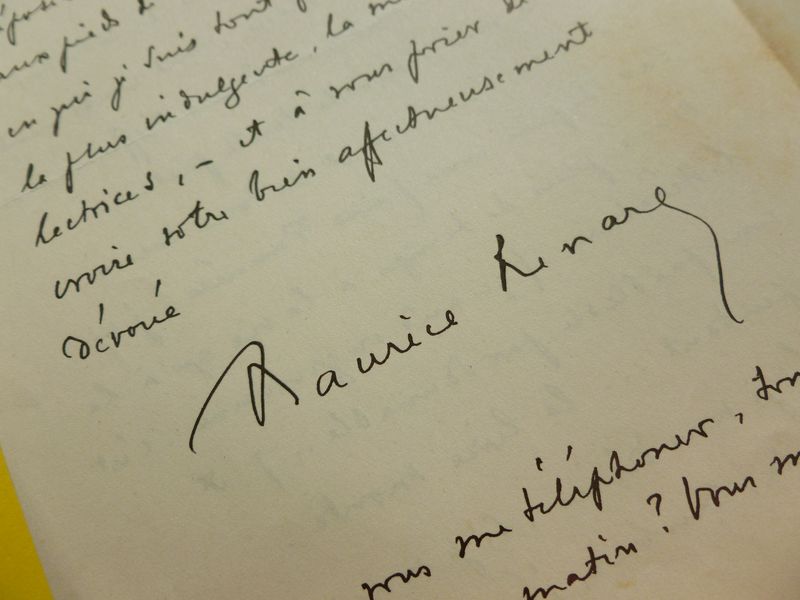 aux pieds
en qui je suis tout
la plus indulgente, la
lectrices, – et à vous prier de
croire votre bien affectueusement
dévoué
Maurice Renard
vous me téléphoner,
matin ? Vous